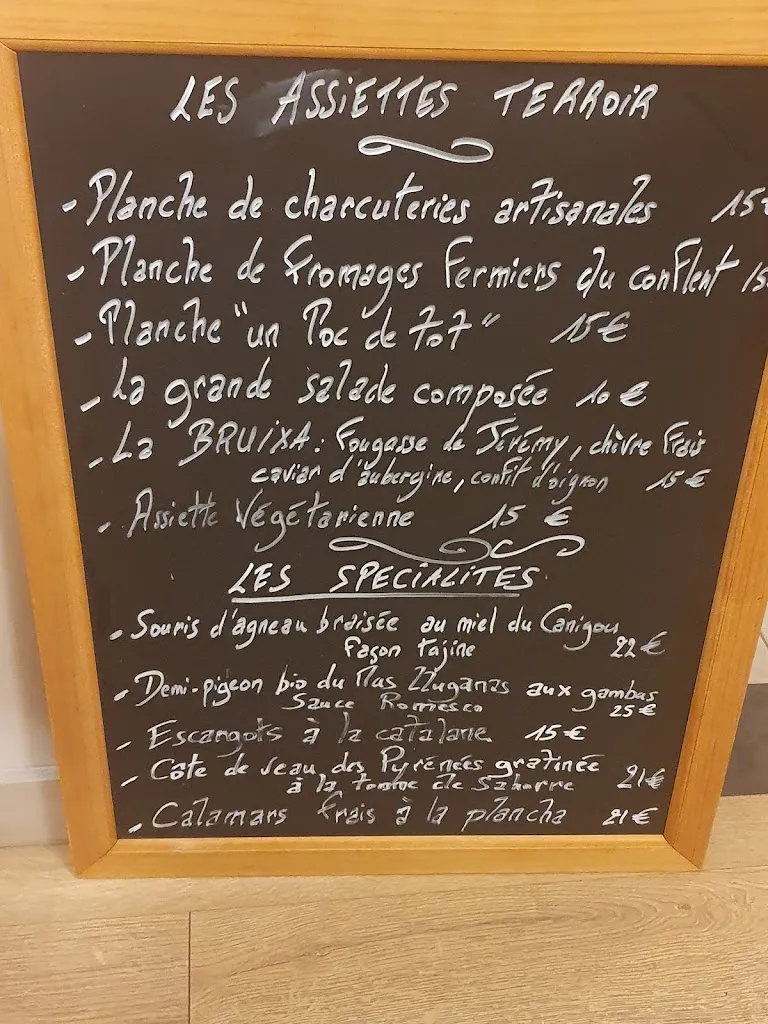 LES ASSIETTES TERROIR
- Planche de charcuteries artisanales 15€
- Planche de fromages fermiers du conflent 15
- Planche "un Poc de tot" 15€
- La grande salade composée 10€
- La BRUIXA: Fougasse de Jérémy, chèvre frais
caviar d'aubergine, confit d'oignon 15€
- Assiette Végétarienne 15€
LES SPECIALITES
- Souris d'agneau braisée au miel du Canigou
façon tajine 22€
- Demi-pigeon bio du Mas Lluganas aux gambas
Sauce Romesco 25€
- Escargots à la catalane 15€
- Côte de veau des Pyrénées gratinée
à la tomme de Sahorre 21€
- Calamars frais à la plancha 21€